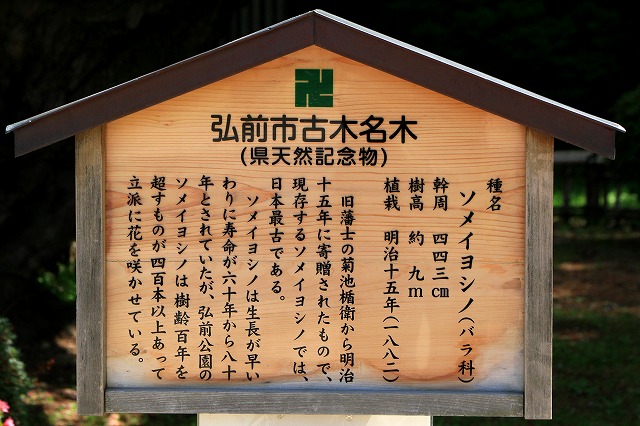 卍
弘前市古木名木
(県天然記念物)
種名
ソメイヨシノ(バラ科)
幹周 四四三㎝
樹高 約 九m
植栽 明治十五年(一八八二)
旧藩士の菊池楯衛から明治
十五年に寄贈されたもので、
現存するソメイヨシノでは、
日本最古である。
ソメイヨシノは生長が早い
わりに寿命が六十年から八十
年とされていたが、弘前公園の
ソメイヨシノは樹齢百年を
超すものが四百本以上あって
立派に花を咲かせている。